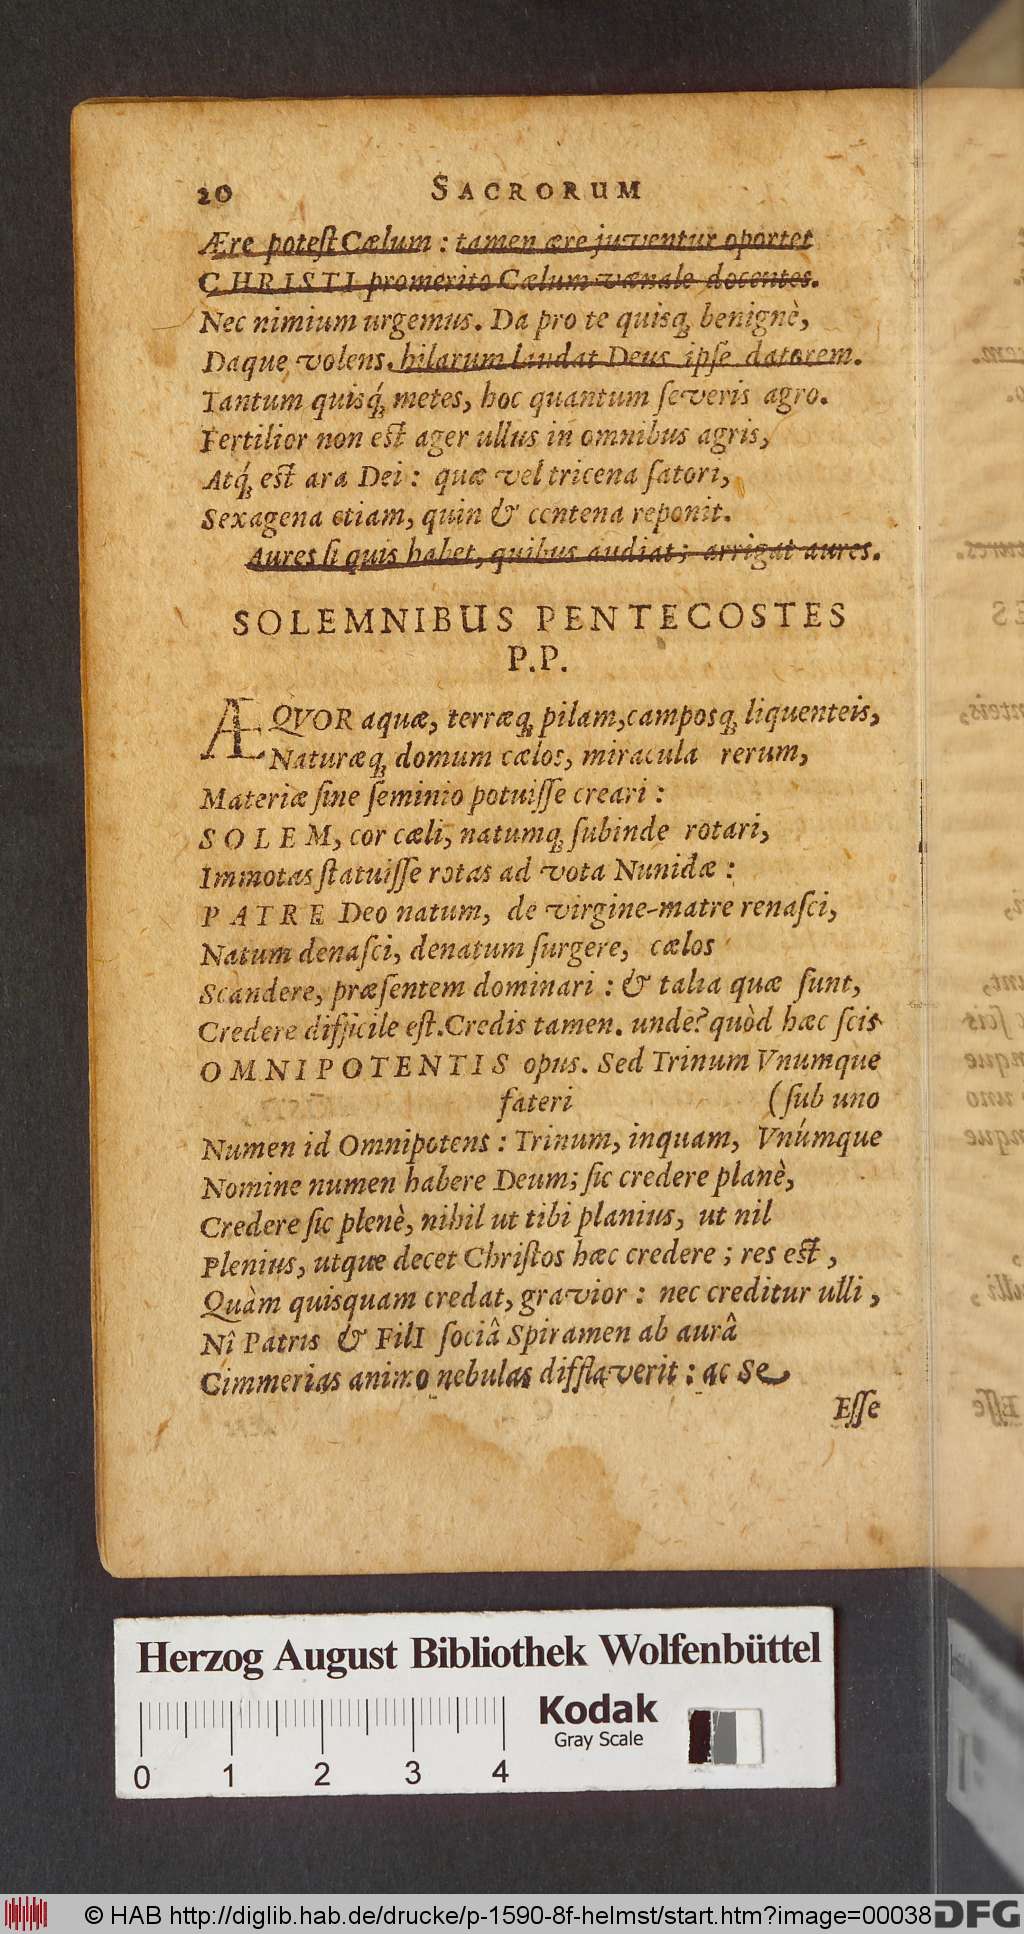 20 SACRORUM
Ære potest Cælum : tamen ære juventur oportet
CHRISTI promerito Cælum vænale docentes.
Nec nimium urgemus. Da pro te quisq; benignè,
Daque volens. hilarum laudat Deus ipse datorem.
Tantum quisq́; metes, hoc quantum severis agro.
Fertilior non est ager ullus in omnibus agris,
Atq́; est ara Dei : quæ vel tricena satori,
Sexagena etiam, quin & centena reponit.
Aures si quis habet, quibus audiat; arrigat aures.
SOLEMNIBUS PENTECOSTES
P.P.
ÆQVOR aquæ, terræq; pilam, camposq; liquenteis,
Naturæq; domum cælos, miracula rerum,
Materiæ sine seminio potuisse creari :
SOLEM, cor cæli, natumq; subinde rotari,
Immotas statuisse rotas ad vota Nunidæ :
PATRE Deo natum, de virgine-matre renasci,
Natum denasci, denatum surgere, cælos
Scandere, præsentem dominari : & talia quæ sunt,
Credere difficile est. Credis tamen. unde? quòd hæc scis
OMNIPOTENTIS opus. Sed Trinum Vnumque
fateri (sub uno
Numen id Omnipotens : Trinum, inquam, Vnúmque
Nomine numen habere Deum; sic credere planè,
Credere sic plenè, nihil ut tibi planius, ut nil
Plenius, utque decet Christos hæc credere ; res est ,
Quàm quisquam credat, gravior : nec creditur ulli ,
Nî Patris & FilI sociâ Spiramen ab aurâ
Cimmerias animo nebulas difflaverit : ac Se
Esse
Herzog August Bibliothek Wolfenbüttel
Kodak
Gray Scale
0 1 2 3 4
© HAB http://diglib.hab.de/drucke/p-1590-8f-helmst/start.htm?image=00038
DFG